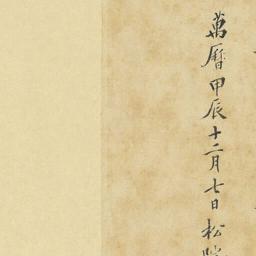 萬曆甲辰十二月七日松